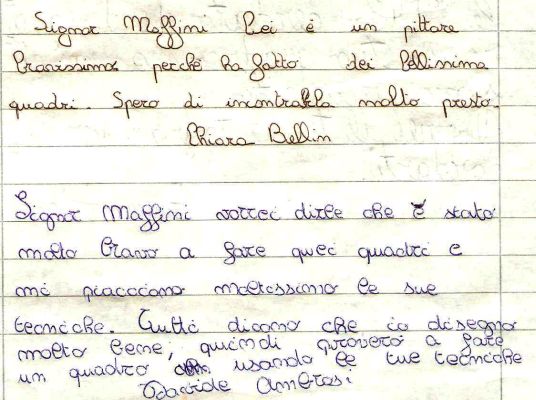 Signor Maffini Lei è un pittore
bravissimo perché ha fatto dei bellissima
quadri. Spero di incontrarla molto presto.
Chiara Bellin
Signor Maffini vorrei dirle che è stato
molto bravo a fare quei quadri e
mi piacciono moltissimo le sue
tecniche. Tutti dicono che io disegno
molto bene, quindi proverò a fare
un quadro usando le tue tecniche
Davide Ambrosi